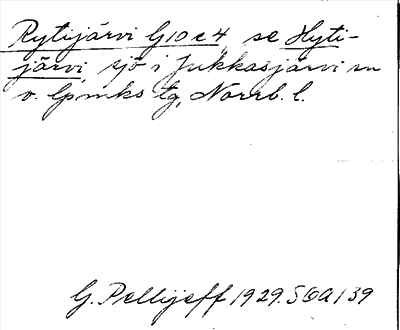 Rytijärvi G10c4, se Hyti-
järvi, sjö i Jukkasjärvi sn
o. lpmks tg, Norrb. l.
G. Pellijeff 1929. SOA 139